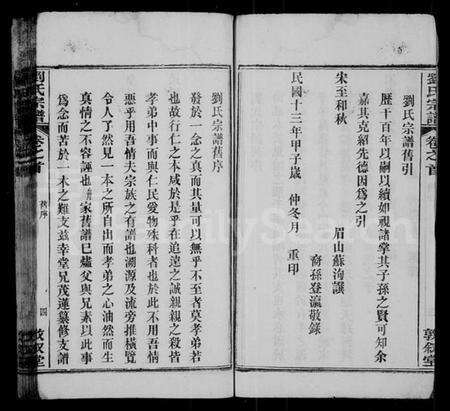 劉氏宗譜
卷之首
敦敘堂
劉氏宗譜舊引
歷千百年以嗣以續如視諸掌其子孫之賢可知余
嘉其克紹先德因爲之引
眉山蘇洵譔
宋至和秋
裔孫登瀛敬錄
民國十三年甲子歲 仲冬月 重印
劉氏宗譜舊序
發於一念之眞而其量可以無乎不至者莫孝弟若
也故行仁之本咸於是乎在追遠之誠親親之殺皆
孝弟中事而與仁民愛物殊科者也於此不用吾情
惡乎用吾情夫宗族之有譜也溯源及流旁推橫覽
令人了然於一本之所自出而孝弟之心油然而生
眞情之不容誣也 家舊譜已燼父與兄素以此事
爲念而苦於一木之難支茲幸堂兄茂蓮纂修支譜
劉氏宗譜
卷之首
舊序
四
敦敘堂